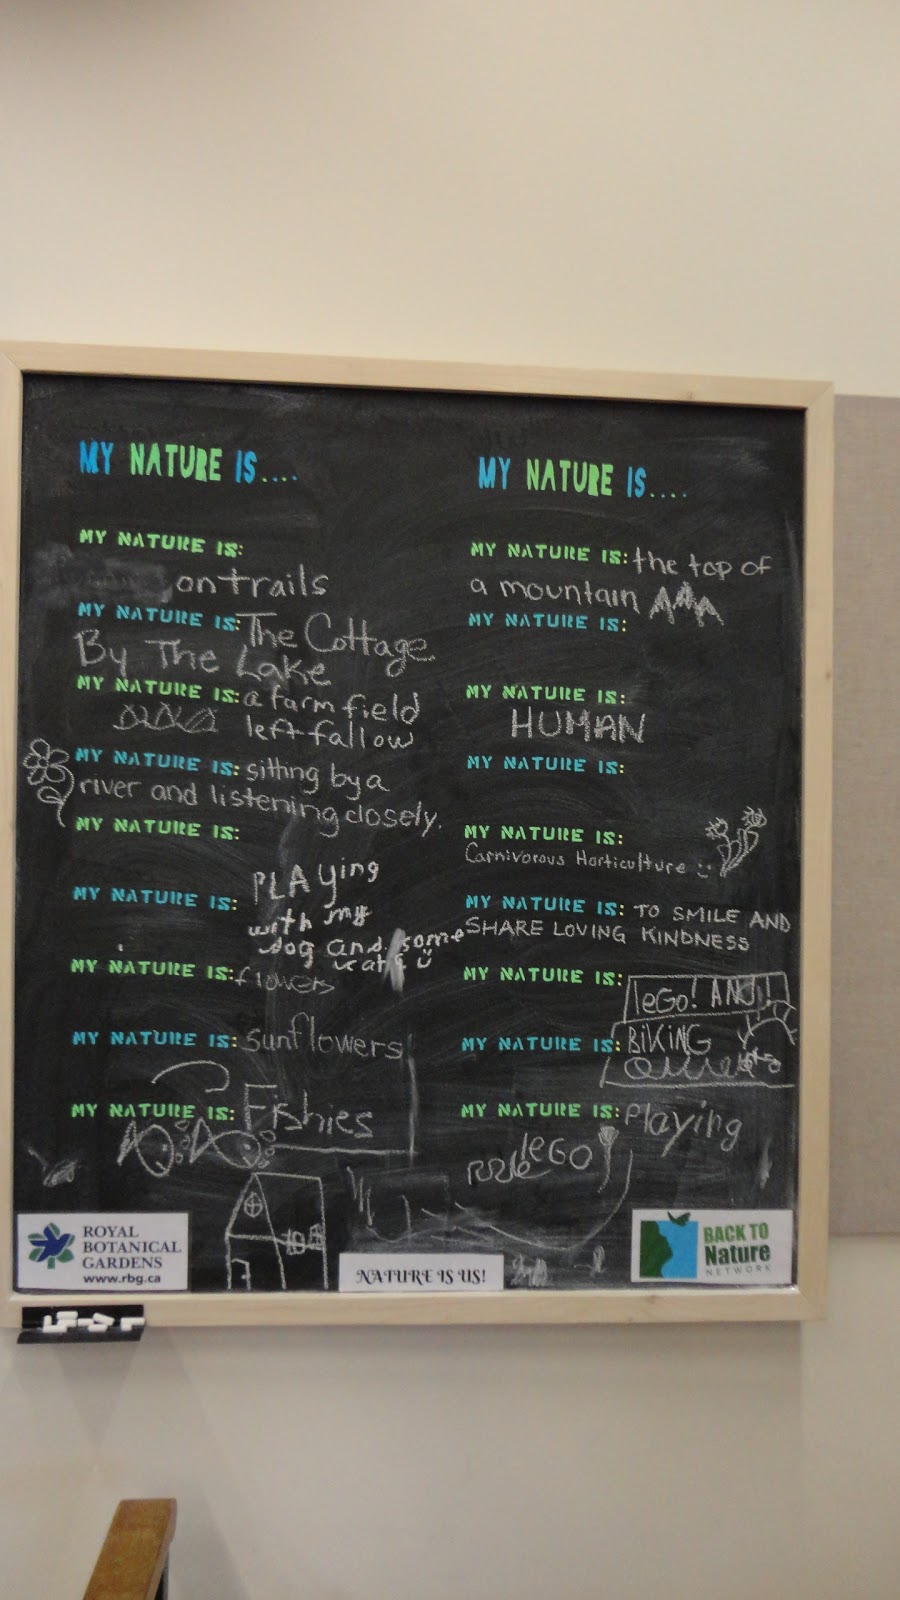 MY NATURE IS....
MY NATURE IS:
on trails
MY NATURE IS: The Cottage
By The Lake
MY NATURE IS: a farm field
left fallow
MY NATURE IS: sitting by a
river and listening closely.
MY NATURE IS:
MY NATURE IS: PLAying
with my
dog and some
cats
MY NATURE IS: flowers
MY NATURE IS: sunflowers
MY NATURE IS: Fishies
MY NATURE IS....
MY NATURE IS: the top of
a mountain
MY NATURE IS:
MY NATURE IS:
HUMAN
MY NATURE IS:
MY NATURE IS:
Carnivorous Horticulture
MY NATURE IS: TO SMILE AND
SHARE LOVING KINDNESS
MY NATURE IS: leGo! AND!!
MY NATURE IS: BIKING
MY NATURE IS: Playing
leGO
ROYAL
BOTANICAL
GARDENS
www.rbg.ca
NATURE IS US!
BACK TO
Nature
NETWORK